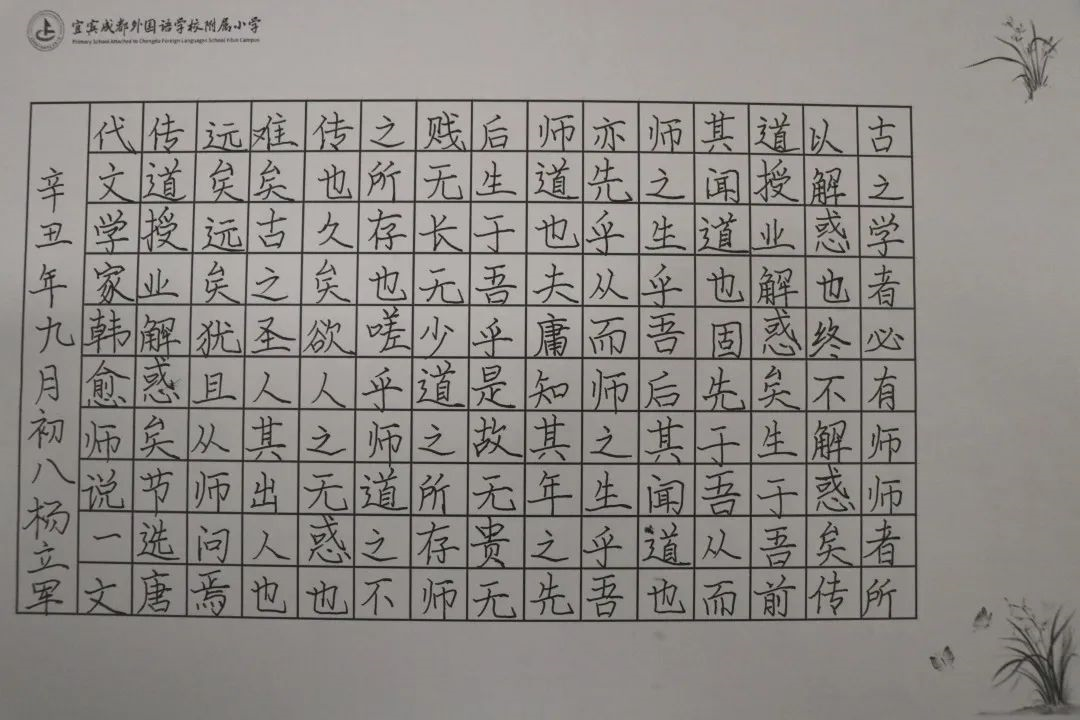 宜宾成都外国语学校附属小学
Primary School Attached to Chengdu Foreign Languages School Yibin Campus
古之学者必有师师者所
以解惑也终不解惑矣传
道授业解惑矣生于吾前
其闻道也固先于吾从而
师之生乎吾后其闻道也
亦先乎从而师之生乎吾
师道也夫庸知其年之先
后生于吾乎是故无贵无
贱无长无少道之所存师
之所存也嗟乎师道之不
传也久矣欲人之无惑也
难矣古之圣人其出人也
远矣远矣犹且从师问焉
传道授业解惑矣节选唐
代文学家韩愈师说一文
辛丑年九月初八杨立军